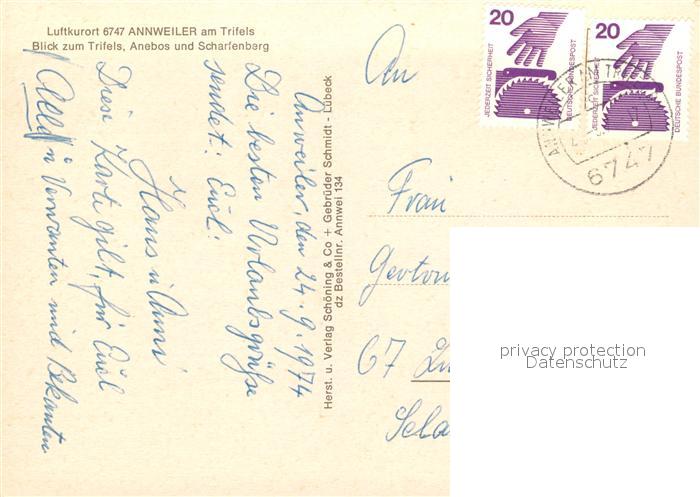 Luftkurort 6747 ANNWEILER am Trifels
Blick zum Trifels, Anebos und Scharfenberg
Anweiler, den 24.9.1974
Die besten Urlaubsgrüße
sendet Eucl.
Hans u Anni
Diese Karte gilt, für Eucl
Alle u Verwanten und Bekanten
Herst. u. Verlag Schöning & Co + Gebrüder Schmidt - Lübeck
dz Bestellnr. Annwei 134
20
JEDERZEIT SICHERHEIT
DEUTSCHE BUNDESPOST
20
JEDERZEIT SICHERHEIT
DEUTSCHE BUNDESPOST
6747
An
Frau
67
privacy protection
Datenschutz